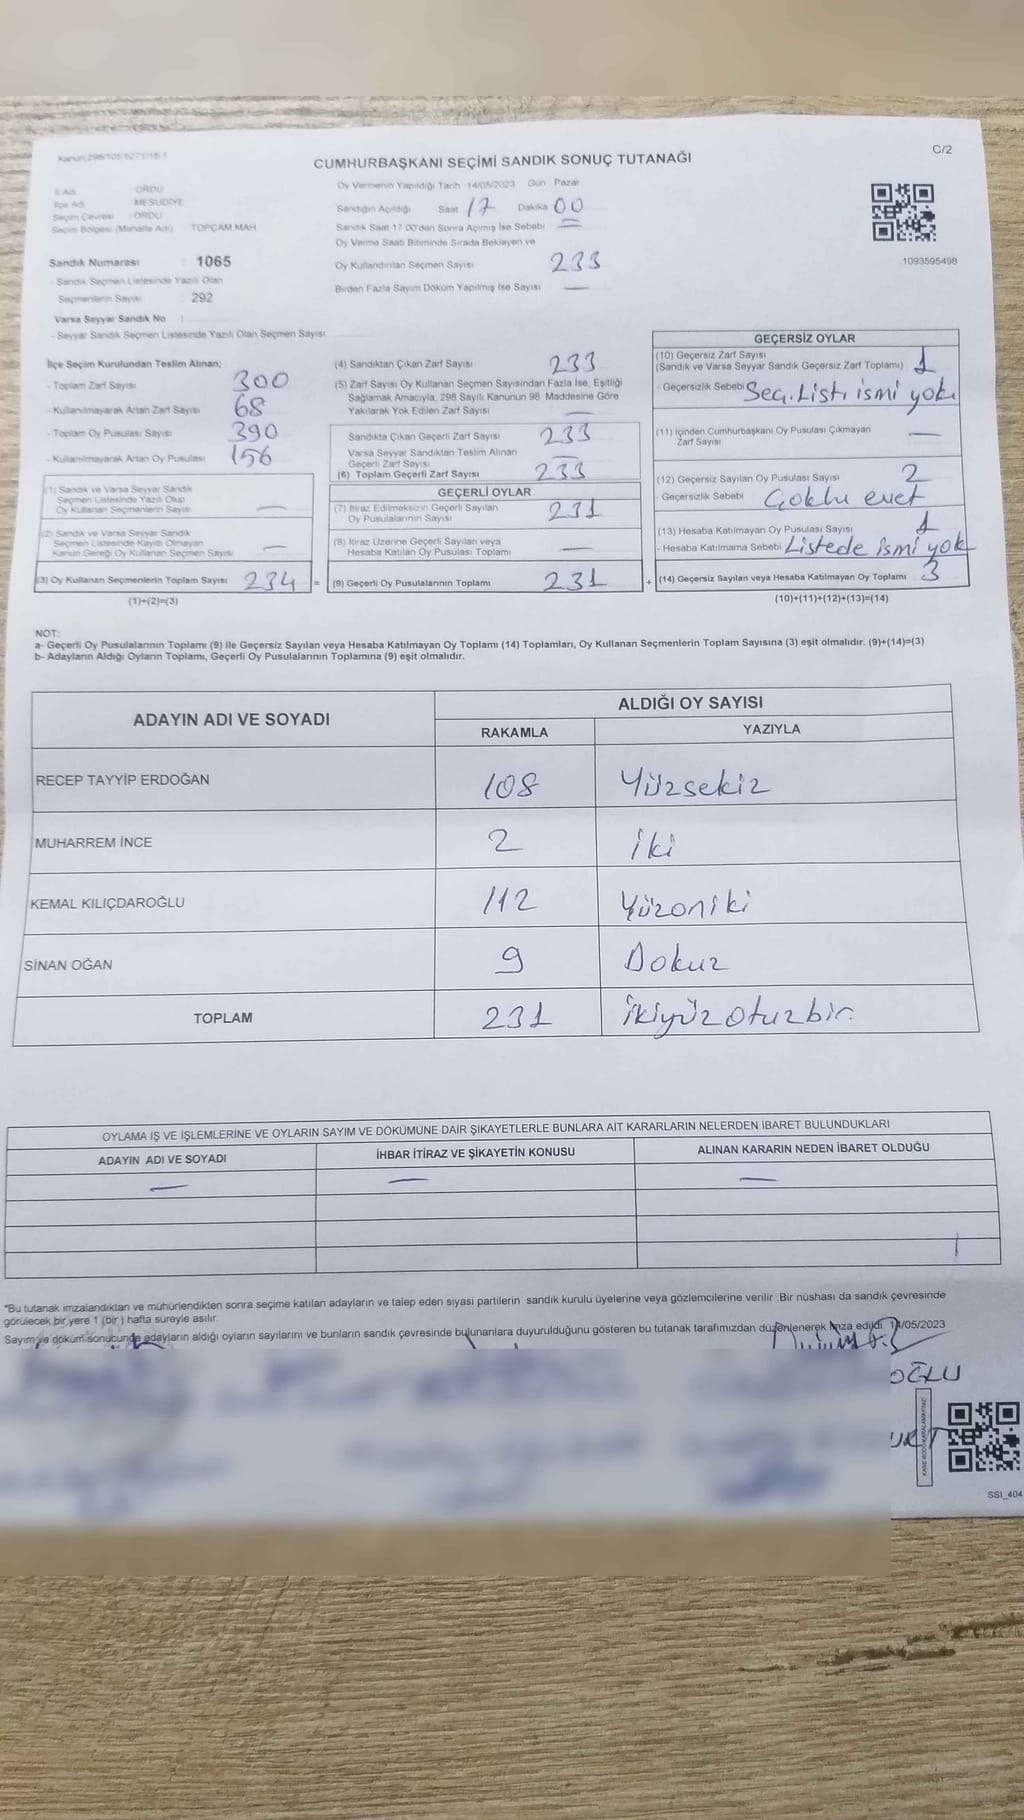 Kanun 298/105 6271/18-1
C/2
CUMHURBAŞKANI SEÇİMİ SANDIK SONUÇ TUTANAĞI
İl Adı ORDU
İlçe Adı MESUDİYE
Seçim Çevresi ORDU
Seçim Bölgesi (Mahalle Adı) TOPÇAM MAH
Sandık Numarası : 1065
- Sandık Seçmen Listesinde Yazılı Olan
Seçmenlerin Sayısı : 292
Varsa Seyyar Sandık No :
- Seyyar Sandık Seçmen Listesinde Yazılı Olan Seçmen Sayısı:
Oy Vermenin Yapıldığı Tarih 14/05/2023 Gün Pazar
Sandığın Açıldığı Saat 17 Dakika 00
Sandık Saat 17.00'den Sonra Açılmış İse Sebebi
Oy Verme Saati Bitiminde Sırada Bekleyen ve
Oy Kullandırılan Seçmen Sayısı 233
Birden Fazla Sayım Döküm Yapılmış İse Sayısı —
1093595498
İlçe Seçim Kurulundan Teslim Alınan;
- Toplam Zarf Sayısı 300
- Kullanılmayarak Artan Zarf Sayısı 68
- Toplam Oy Pusulası Sayısı 390
- Kullanılmayarak Artan Oy Pusulası 156
(1) Sandık ve Varsa Seyyar Sandık
Seçmen Listesinde Yazılı Olup
Oy Kullanan Seçmenlerin Sayısı —
(2) Sandık ve Varsa Seyyar Sandık
Seçmen Listesinde Kayıtlı Olmayan
Kanun Gereği Oy Kullanan Seçmen Sayısı —
(3) Oy Kullanan Seçmenlerin Toplam Sayısı 234 =
(1)+(2)=(3)
(4) Sandıktan Çıkan Zarf Sayısı 233
(5) Zarf Sayısı Oy Kullanan Seçmen Sayısından Fazla İse, Eşitliği
Sağlamak Amacıyla, 298 Sayılı Kanunun 98. Maddesine Göre
Yakılarak Yok Edilen Zarf Sayısı —
Sandıkta Çıkan Geçerli Zarf Sayısı 233
Varsa Seyyar Sandıktan Teslim Alınan
Geçerli Zarf Sayısı —
(6) Toplam Geçerli Zarf Sayısı 233
GEÇERLİ OYLAR
(7) İtiraz Edilmeksizin Geçerli Sayılan
Oy Pusulalarının Sayısı 231
(8) İtiraz Üzerine Geçerli Sayılan veya
Hesaba Katılan Oy Pusulası Toplamı —
(9) Geçerli Oy Pusulalarının Toplamı 231 +
GEÇERSİZ OYLAR
(10) Geçersiz Zarf Sayısı
(Sandık ve Varsa Seyyar Sandık Geçersiz Zarf Toplamı) 1
- Geçersizlik Sebebi Seç.List. ismi yok.
(11) İçinden Cumhurbaşkanı Oy Pusulası Çıkmayan
Zarf Sayısı —
(12) Geçersiz Sayılan Oy Pusulası Sayısı 2
- Geçersizlik Sebebi Çoklu evet
(13) Hesaba Katılmayan Oy Pusulası Sayısı 1
- Hesaba Katılmama Sebebi Listede ismi yok
(14) Geçersiz Sayılan veya Hesaba Katılmayan Oy Toplamı 3
(10)+(11)+(12)+(13)=(14)
NOT:
a- Geçerli Oy Pusulalarının Toplamı (9) ile Geçersiz Sayılan veya Hesaba Katılmayan Oy Toplamı (14) Toplamları, Oy Kullanan Seçmenlerin Toplam Sayısına (3) eşit olmalıdır. (9)+(14)=(3)
b- Adayların Aldığı Oyların Toplamı, Geçerli Oy Pusulalarının Toplamına (9) eşit olmalıdır.
ADAYIN ADI VE SOYADI
ALDIĞI OY SAYISI
RAKAMLA YAZIYLA
RECEP TAYYİP ERDOĞAN 108 Yüzsekiz
MUHARREM İNCE 2 iki
KEMAL KILIÇDAROĞLU 112 Yüzoniki
SİNAN OĞAN 9 Dokuz
TOPLAM 231 ikiyüzotuzbir.
OYLAMA İŞ VE İŞLEMLERİNE VE OYLARIN SAYIM VE DÖKÜMÜNE DAİR ŞİKAYETLERLE BUNLARA AİT KARARLARIN NELERDEN İBARET BULUNDUKLARI
ADAYIN ADI VE SOYADI İHBAR İTİRAZ VE ŞİKAYETİN KONUSU ALINAN KARARIN NEDEN İBARET OLDUĞU
— — —
*Bu tutanak imzalandıktan ve mühürlendikten sonra seçime katılan adayların ve talep eden siyasi partilerin sandık kurulu üyelerine veya gözlemcilerine verilir. Bir nüshası da sandık çevresinde
görülecek bir yere 1 (bir) hafta süreyle asılır.
Sayım ve döküm sonucunda adayların aldığı oyların sayılarını ve bunların sandık çevresinde bulunanlara duyurulduğunu gösteren bu tutanak tarafımızdan düzenlenerek imza edildi. 14/05/2023
OĞLU
SSI_404